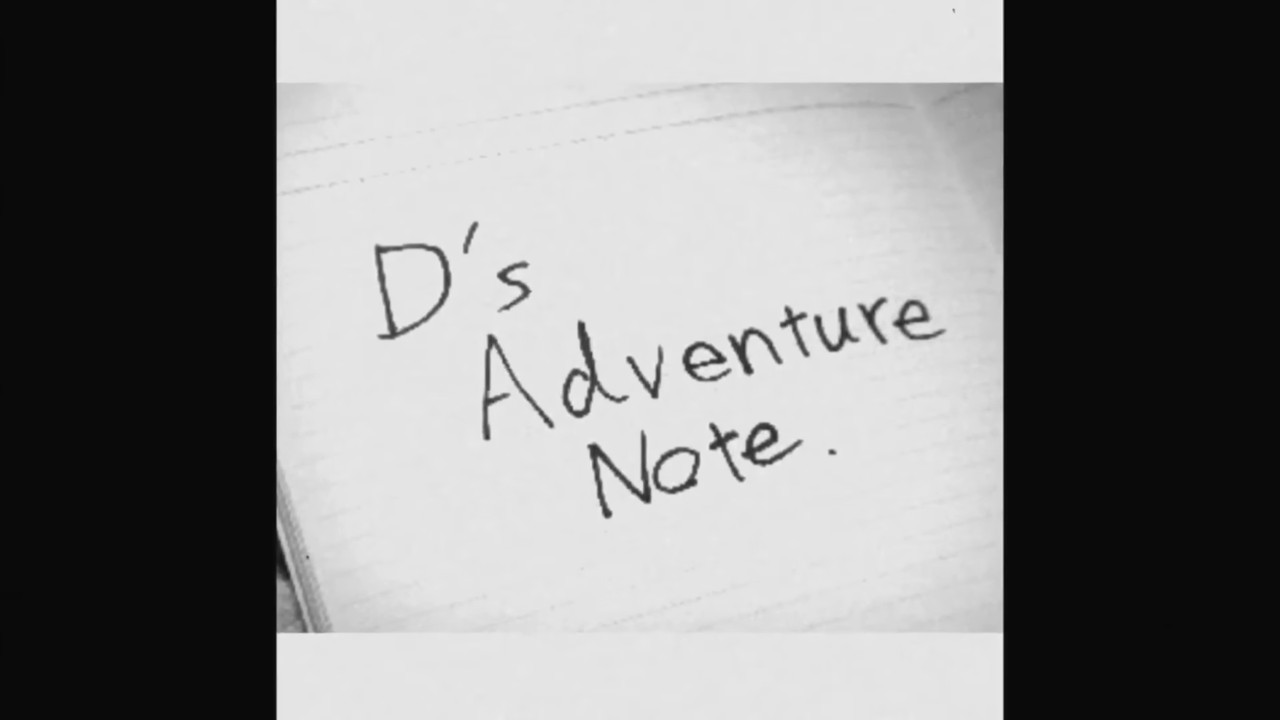 D's
Adventure
Note.